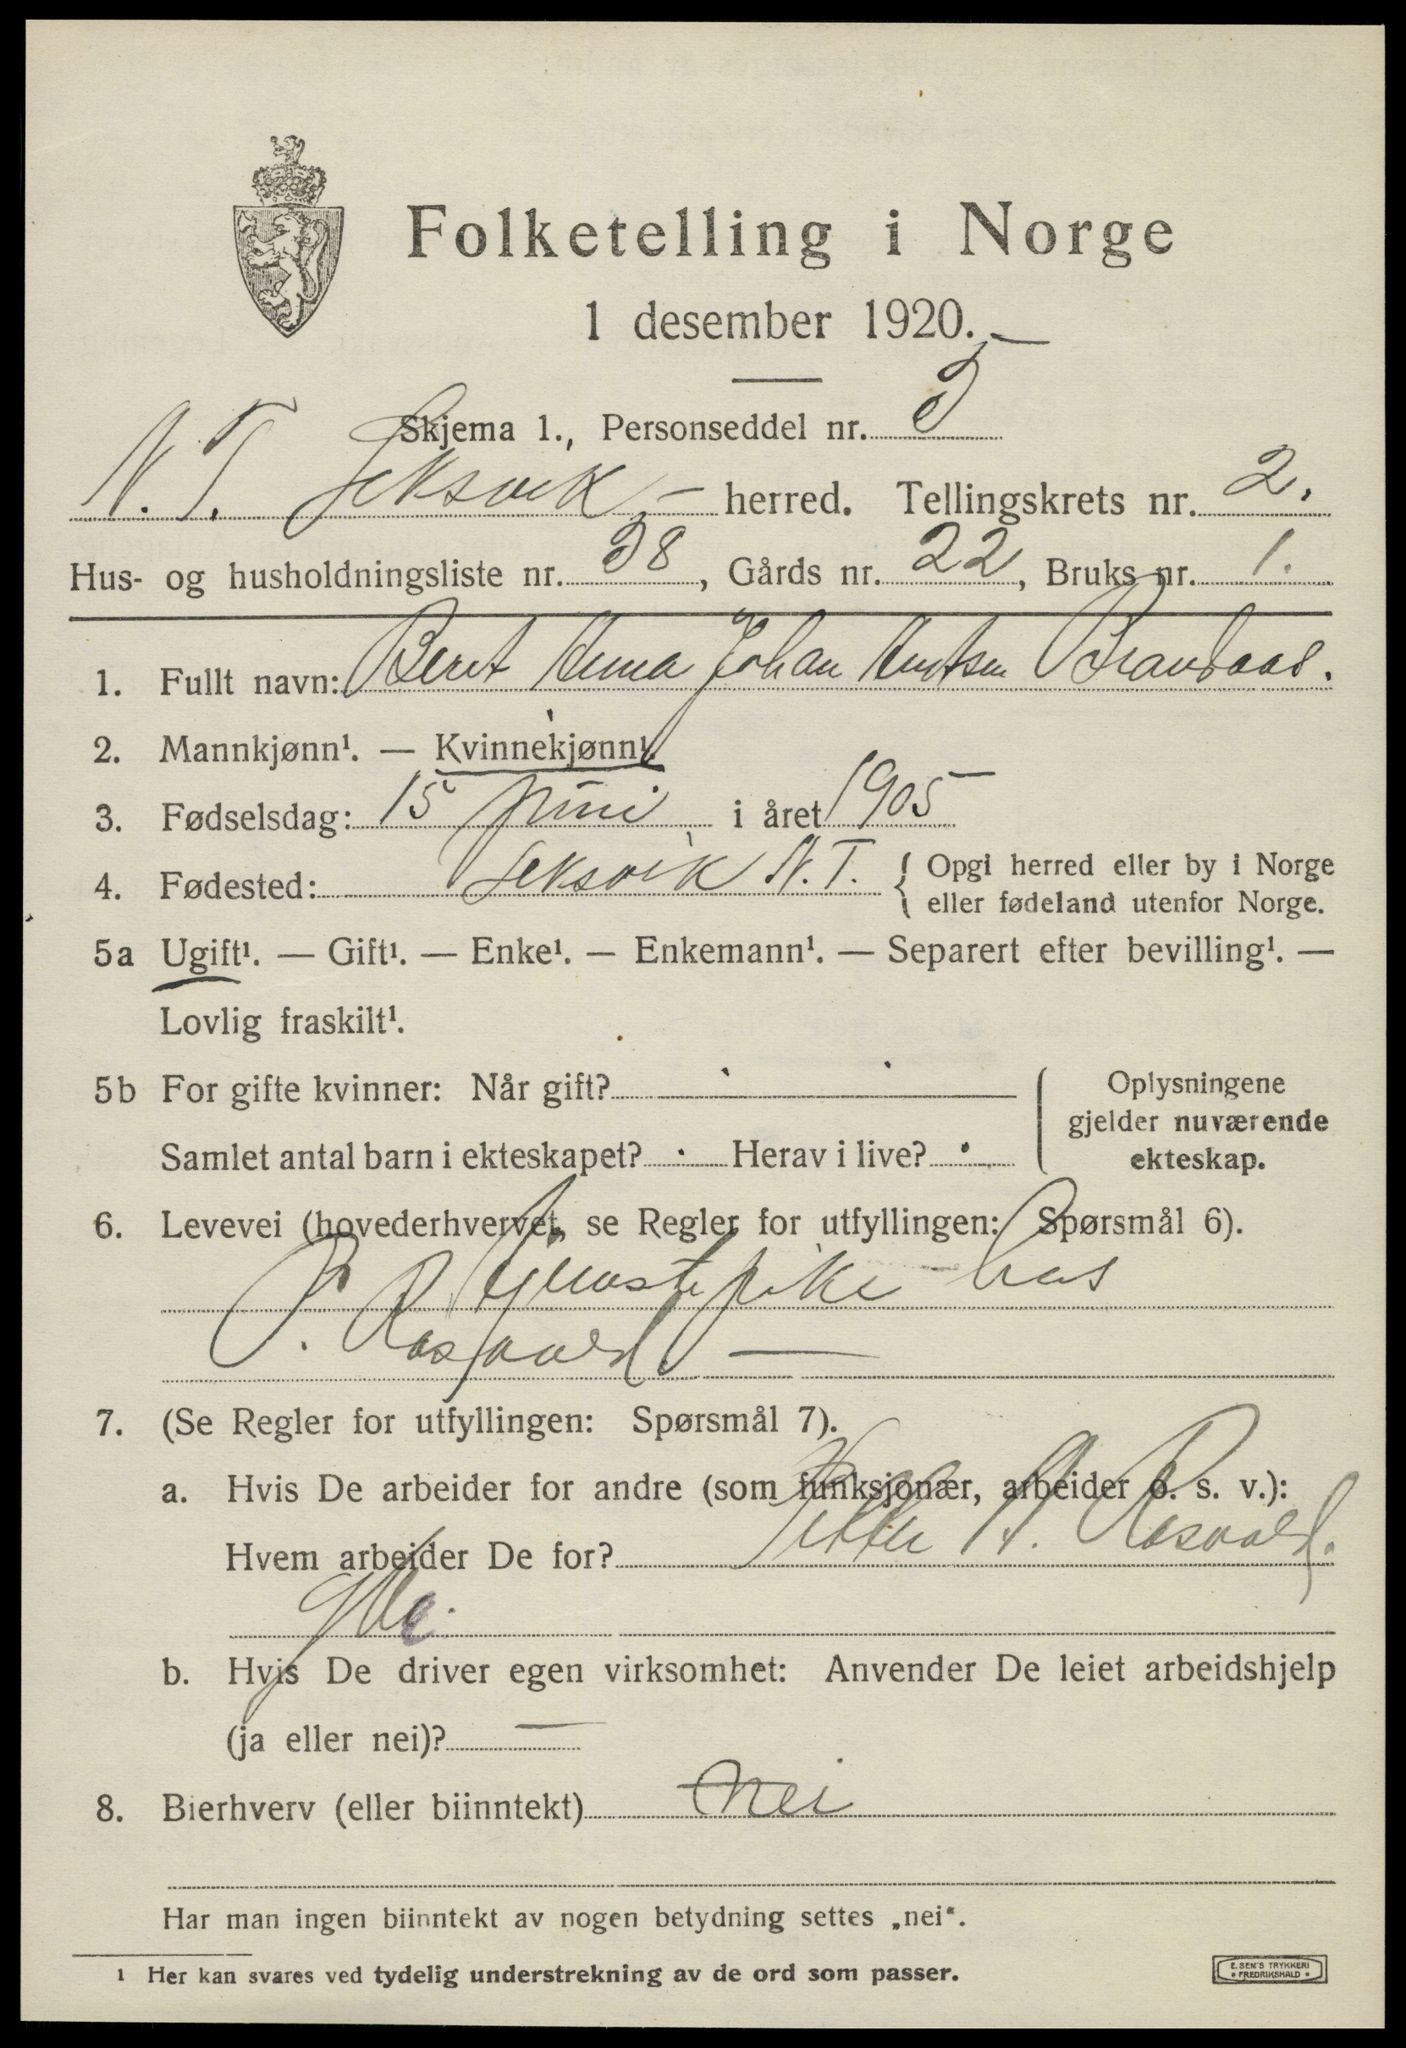 Folketelling i Norge
1 desember 1920.
Skjema 1., Personseddel nr. 5
N. T. Leksvik herred. Tellingskrets nr. 2.
Hus- og husholdningsliste nr. 38, Gårds nr. 22, Bruks nr. 1.
1. Fullt navn: Beret Anna Johan Knutsen
2. Mannkjønn¹. — Kvinnekjønn¹.
3. Fødselsdag: 15 juni i året 1905
4. Fødested: Leksvik N. T. { Opgi herred eller by i Norge
eller fødeland utenfor Norge.
5a Ugift¹. — Gift¹. — Enke¹. — Enkemann¹. — Separert efter bevilling¹. —
Lovlig fraskilt¹.
5b For gifte kvinner: Når gift?
Samlet antal barn i ekteskapet? Herav i live?
Oplysningene
gjelder nuværende
ekteskap.
6. Levevei (hovederhvervet, se Regler for utfyllingen: Spørsmål 6).
Tjenestepike hos
P. Rosvold.
7. (Se Regler for utfyllingen: Spørsmål 7).
a. Hvis De arbeider for andre (som funksjonær, arbeider o. s. v.):
Hvem arbeider De for? Petter A. Rosvold.
b. Hvis De driver egen virksomhet: Anvender De leiet arbeidshjelp
(ja eller nei)? —
8. Bierhverv (eller biinntekt) nei
Har man ingen biinntekt av nogen betydning settes „nei".
¹ Her kan svares ved tydelig understrekning av de ord som passer.
E. SEM'S TRYKKERI
• FREDRIKSHALD •